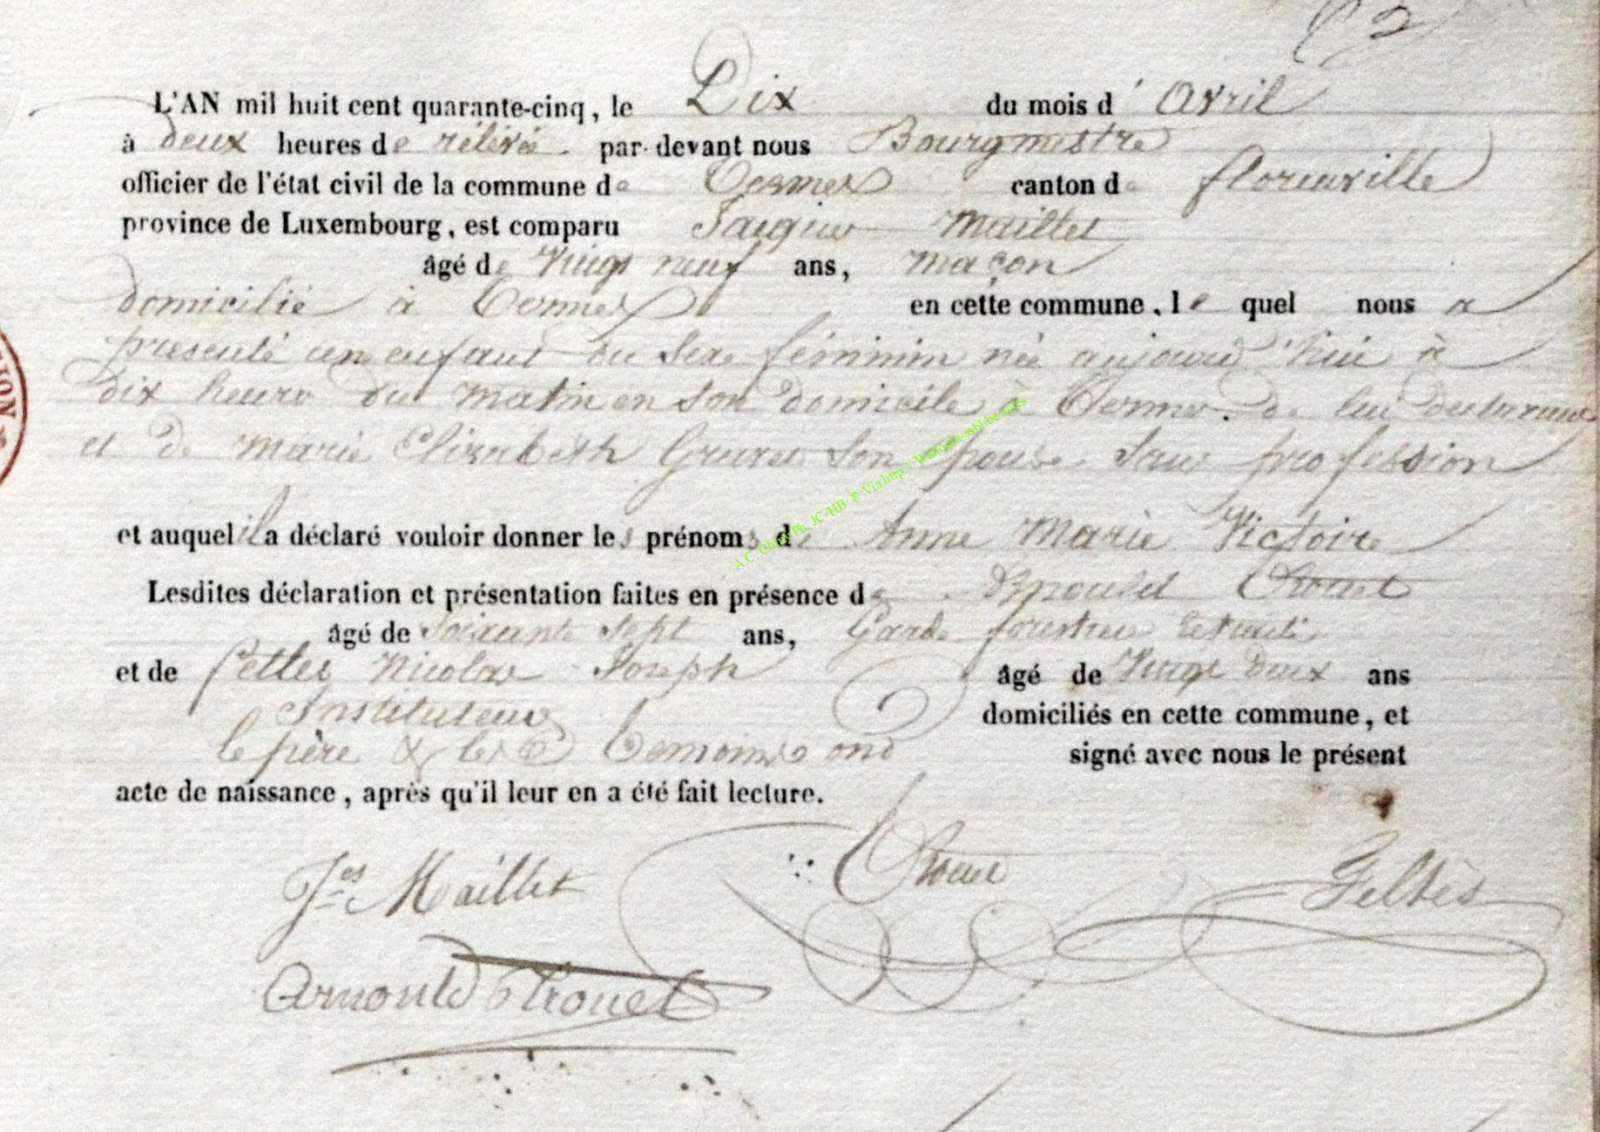 L'AN mil huit cent quarante-cinq, le Dix du mois d' avril
à deux heures de rélévée par-devant nous Bourgmestre
officier de l'état civil de la commune de Termes canton de florenville
province de Luxembourg, est comparu Jacques Maillet
âgé de vingt neuf ans, maçon
domicilié à Termes en cette commune, le quel nous a
présenté un enfant du sexe féminin née aujourd'hui à
dix heure du matin en son domicile à Termes. de lui déclarant
et de Marie Elizabeth son épouse sans profession
et auquel il a déclaré vouloir donner les prénoms de Anne Marie Victoire
Lesdites déclaration et présentation faites en présence de
âgé de soixante sept ans, Garde forestier retraité
et de feltes Nicolas Joseph âgé de vingt deux ans
Instituteur domiciliés en cette commune, et
le père & les témoins ont signé avec nous le présent
acte de naissance, après qu'il leur en a été fait lecture.
Jes Maillet
Feltès
Arnould